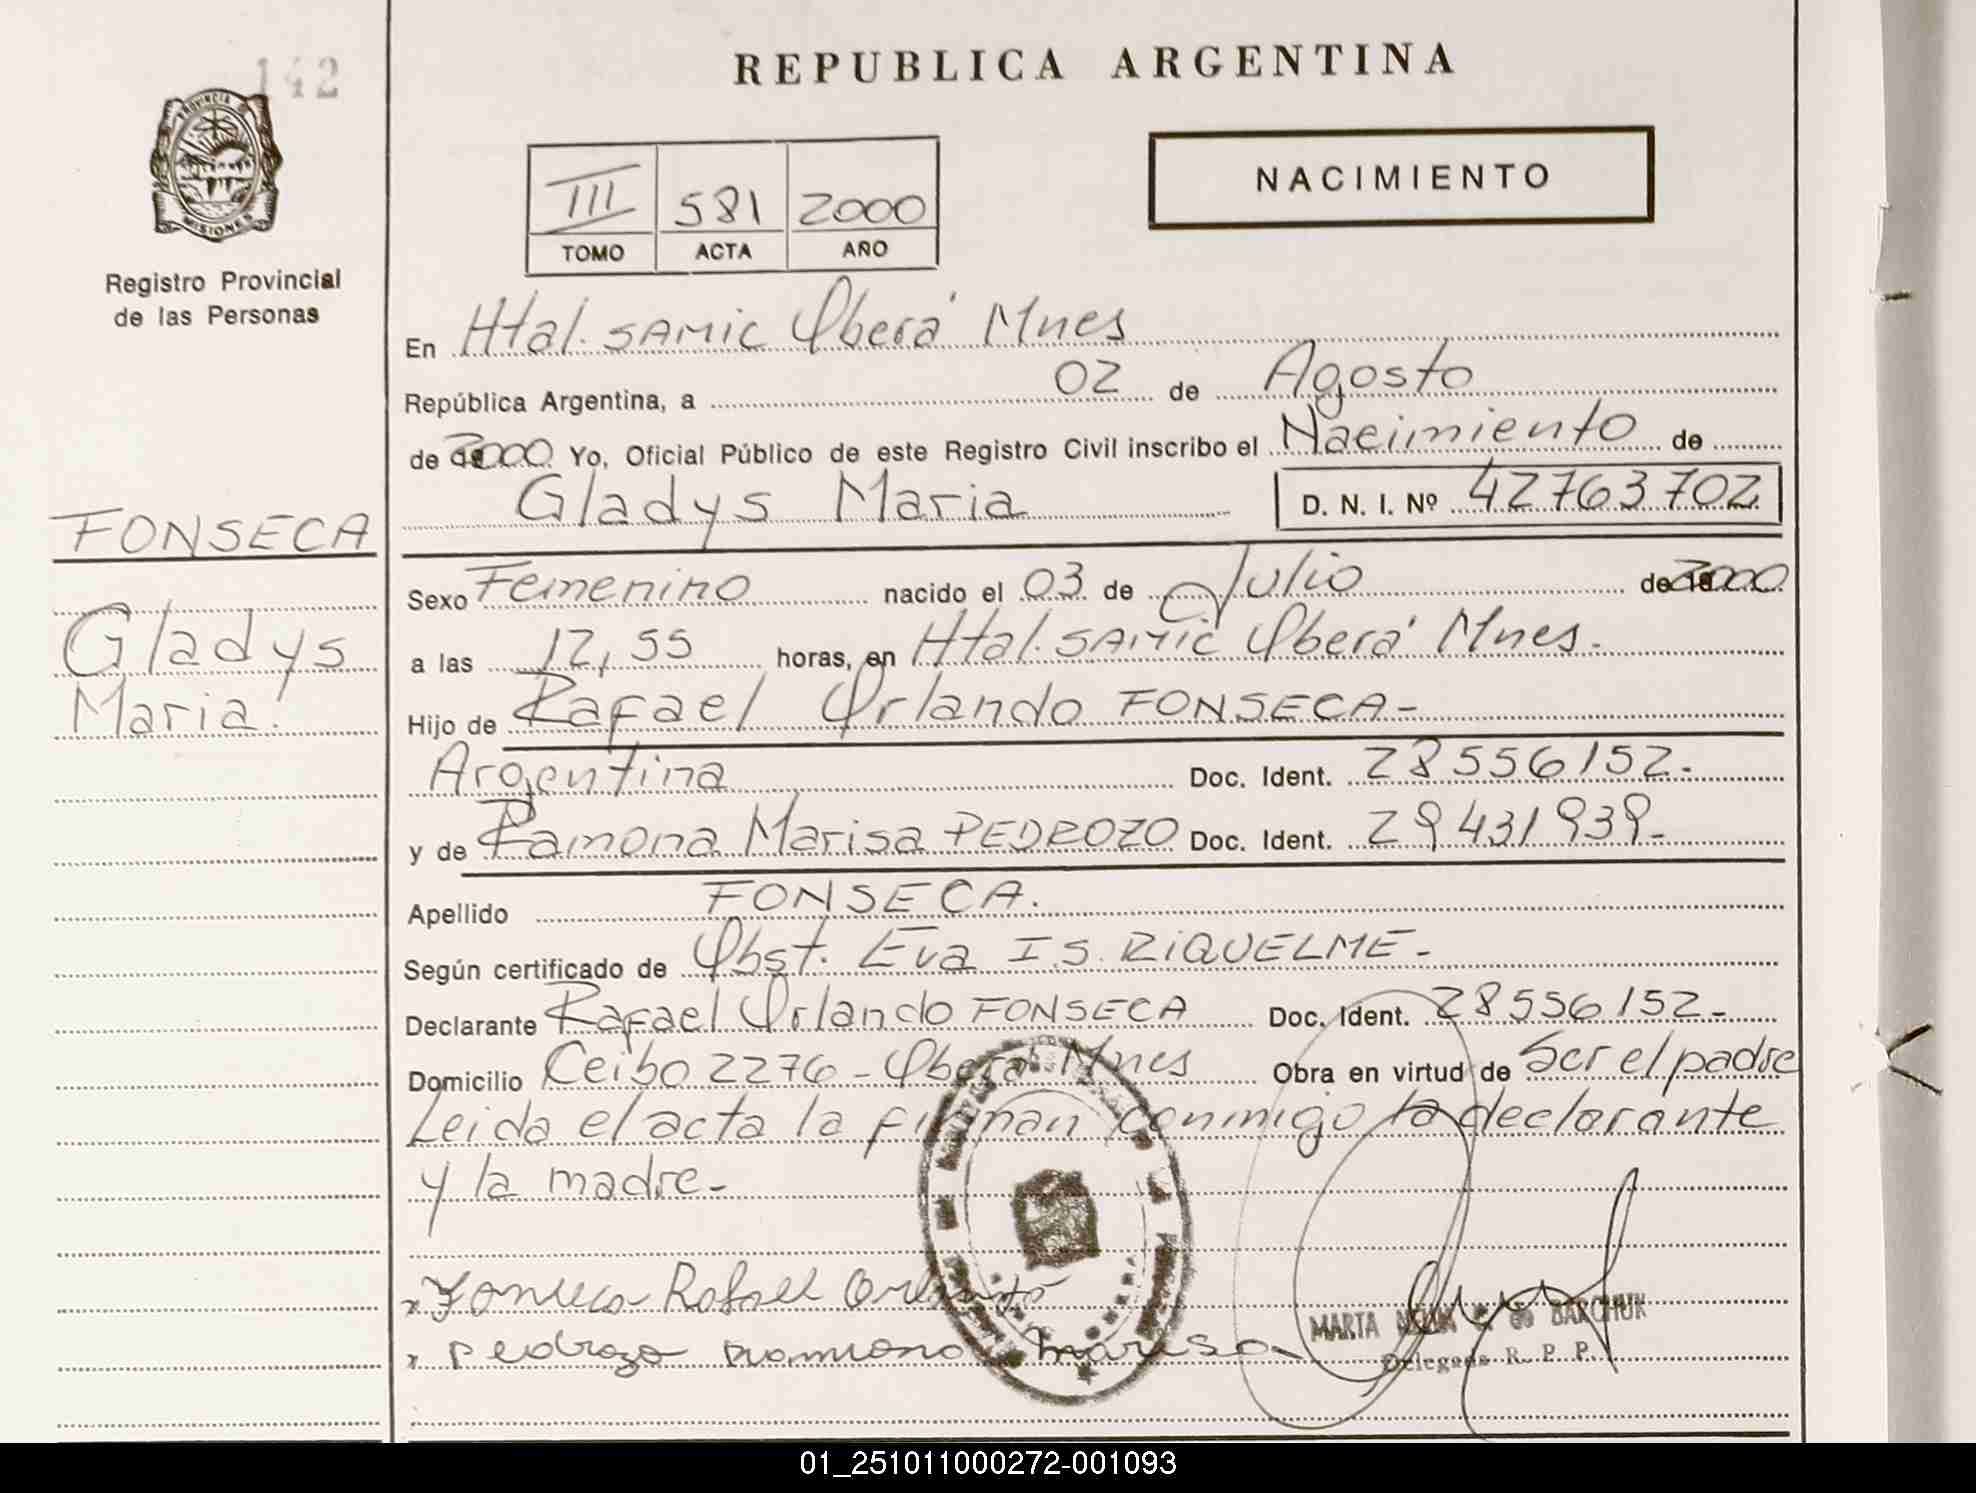 142
PROVINCIA DE
MISIONES
Registro Provincial
de las Personas
FONSECA
Gladys
Maria.
REPUBLICA ARGENTINA
NACIMIENTO
III 581 2000
TOMO ACTA AÑO
En Htal. SAMIC Oberá Mnes
República Argentina, a 02 de Agosto
de 2000 Yo, Oficial Público de este Registro Civil inscribo el Nacimiento de
Gladys Maria D. N. I. Nº 42763702
Sexo Femenino nacido el 03 de Julio de 2000
a las 12,55 horas, en Htal. SAMIC Oberá Mnes.
Hijo de Rafael Orlando FONSECA-
Argentina Doc. Ident. 28556152.
y de Ramona Marisa PEDROZO Doc. Ident. 29431939-
Apellido FONSECA.
Según certificado de Obst. Eva I.S. RIQUELME-
Declarante Rafael Orlando FONSECA Doc. Ident. 28556152-
Domicilio Ceibo 2276 - Oberá Mnes Obra en virtud de Ser el padre
Leida el acta la firman conmigo la declarante
y la madre-
Fonseca Rafael Orlando
pedrozo ramona marisa
MARTA DE BARCHUK
Delegada R. P. P.
01_251011000272-001093